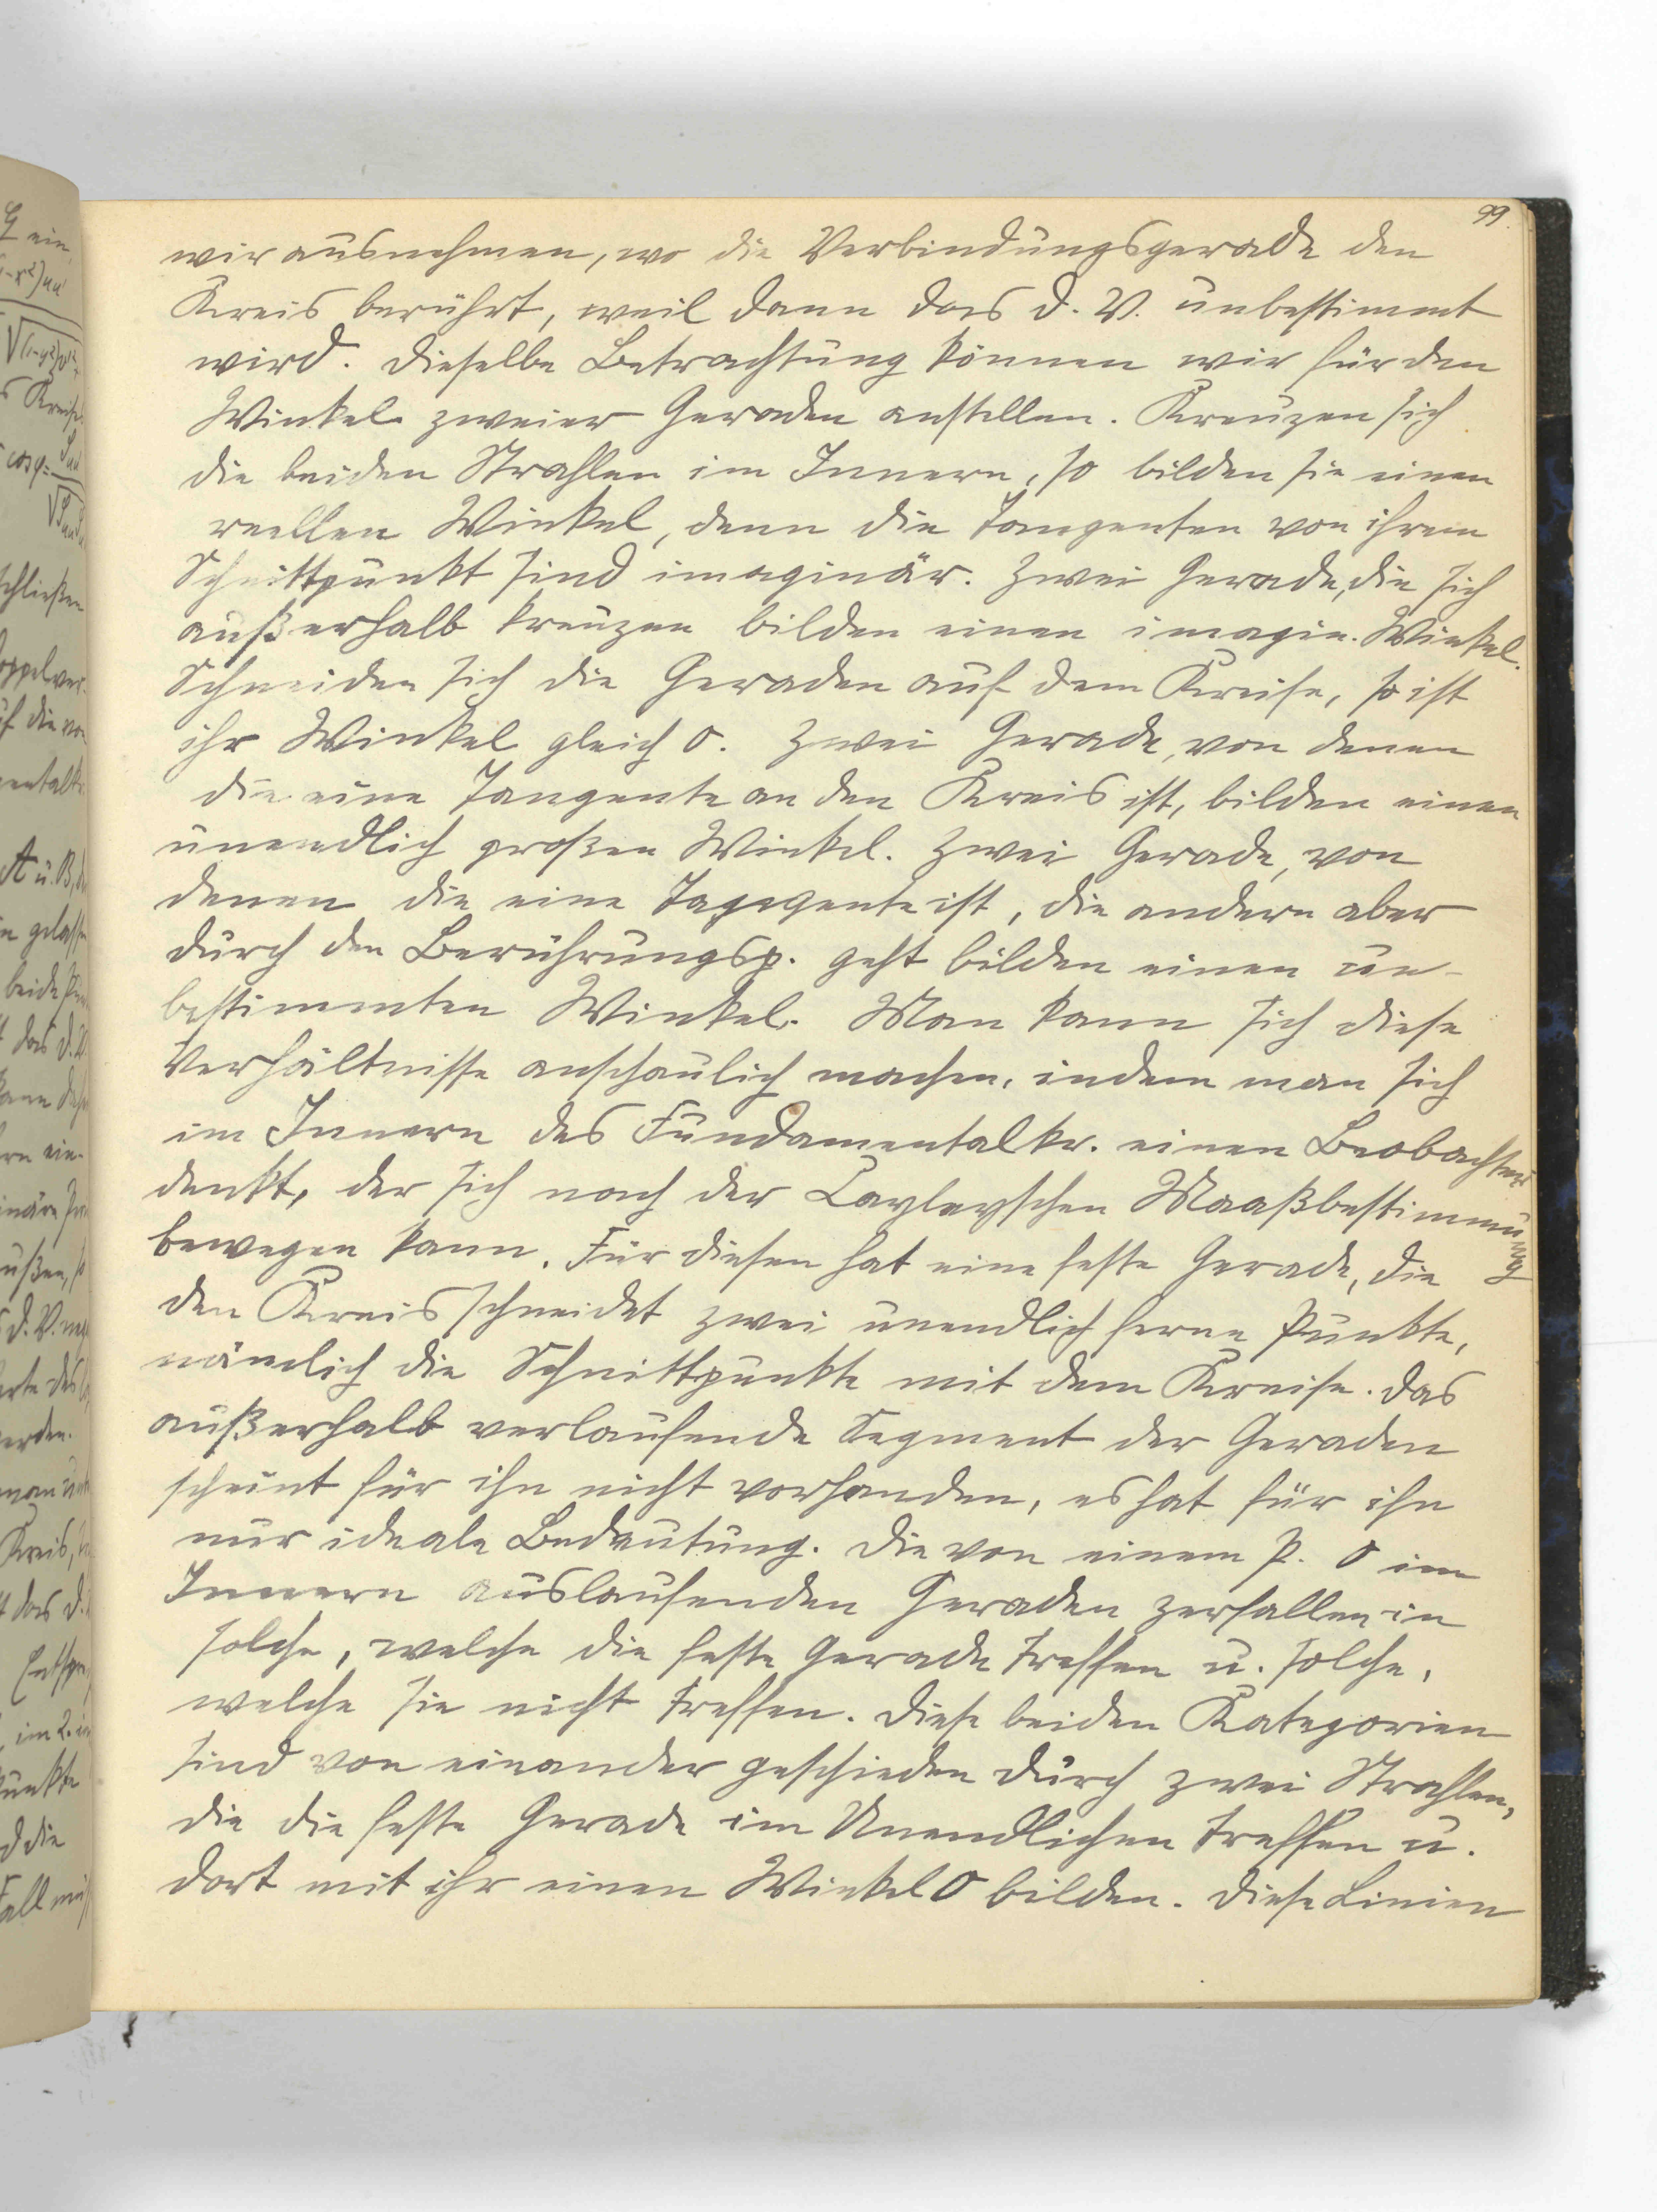 99.
wir ausnehmen, wo die Verbindungsgerade den
Kreis berührt, weil dann das D. V. unbestimmt
wird. Dieselbe Betrachtung können wir für den
Winkel zweier Geraden anstellen. Kreuzen sich
die beiden Strahlen im Innern, so bilden sie einen
reellen Winkel, denn die Tangenten von ihrem
Schnittpunkt sind imaginär. Zwei Gerade, die sich
außerhalb kreuzen bilden einen imagin. Winkel.
Schneiden sich die Geraden auf dem Kreise, so ist
ihr Winkel gleich 0. Zwei Gerade, von denen
die eine Tangente an den Kreis ist, bilden einen
unendlich großen Winkel. Zwei Gerade, von
denen die eine Tangente ist, die andern aber
durch den Berührungsp. geht bilden einen un-
bestimmten Winkel. Man kann sich diese
Verhältnisse anschaulich machen, indem man sich
im Innern des Fundamentalkr. einen Beobachter
denkt, der sich nach der Cayleyschen Maaßbestimmung
bewegen kann. Für diesen hat eine feste Gerade, die
den Kreis schneidet zwei unendlich ferne Punkte,
nämlich die Schnittpunkte mit dem Kreise. Das
außerhalb verlaufende Segment der Geraden
scheint für ihn nicht vorhanden, es hat für ihn
nur ideale Bedeutung. Die von einem P. O im
Innern auslaufenden Geraden zerfallen in
solche, welche die feste Gerade treffen u. solche,
welche sie nicht treffen. Diese beiden Kategorien
sind von einander geschieden durch zwei Strahlen,
die die feste Gerade im Unendlichen treffen u.
dort mit ihr einen Winkel 0 bilden. Diese Linien